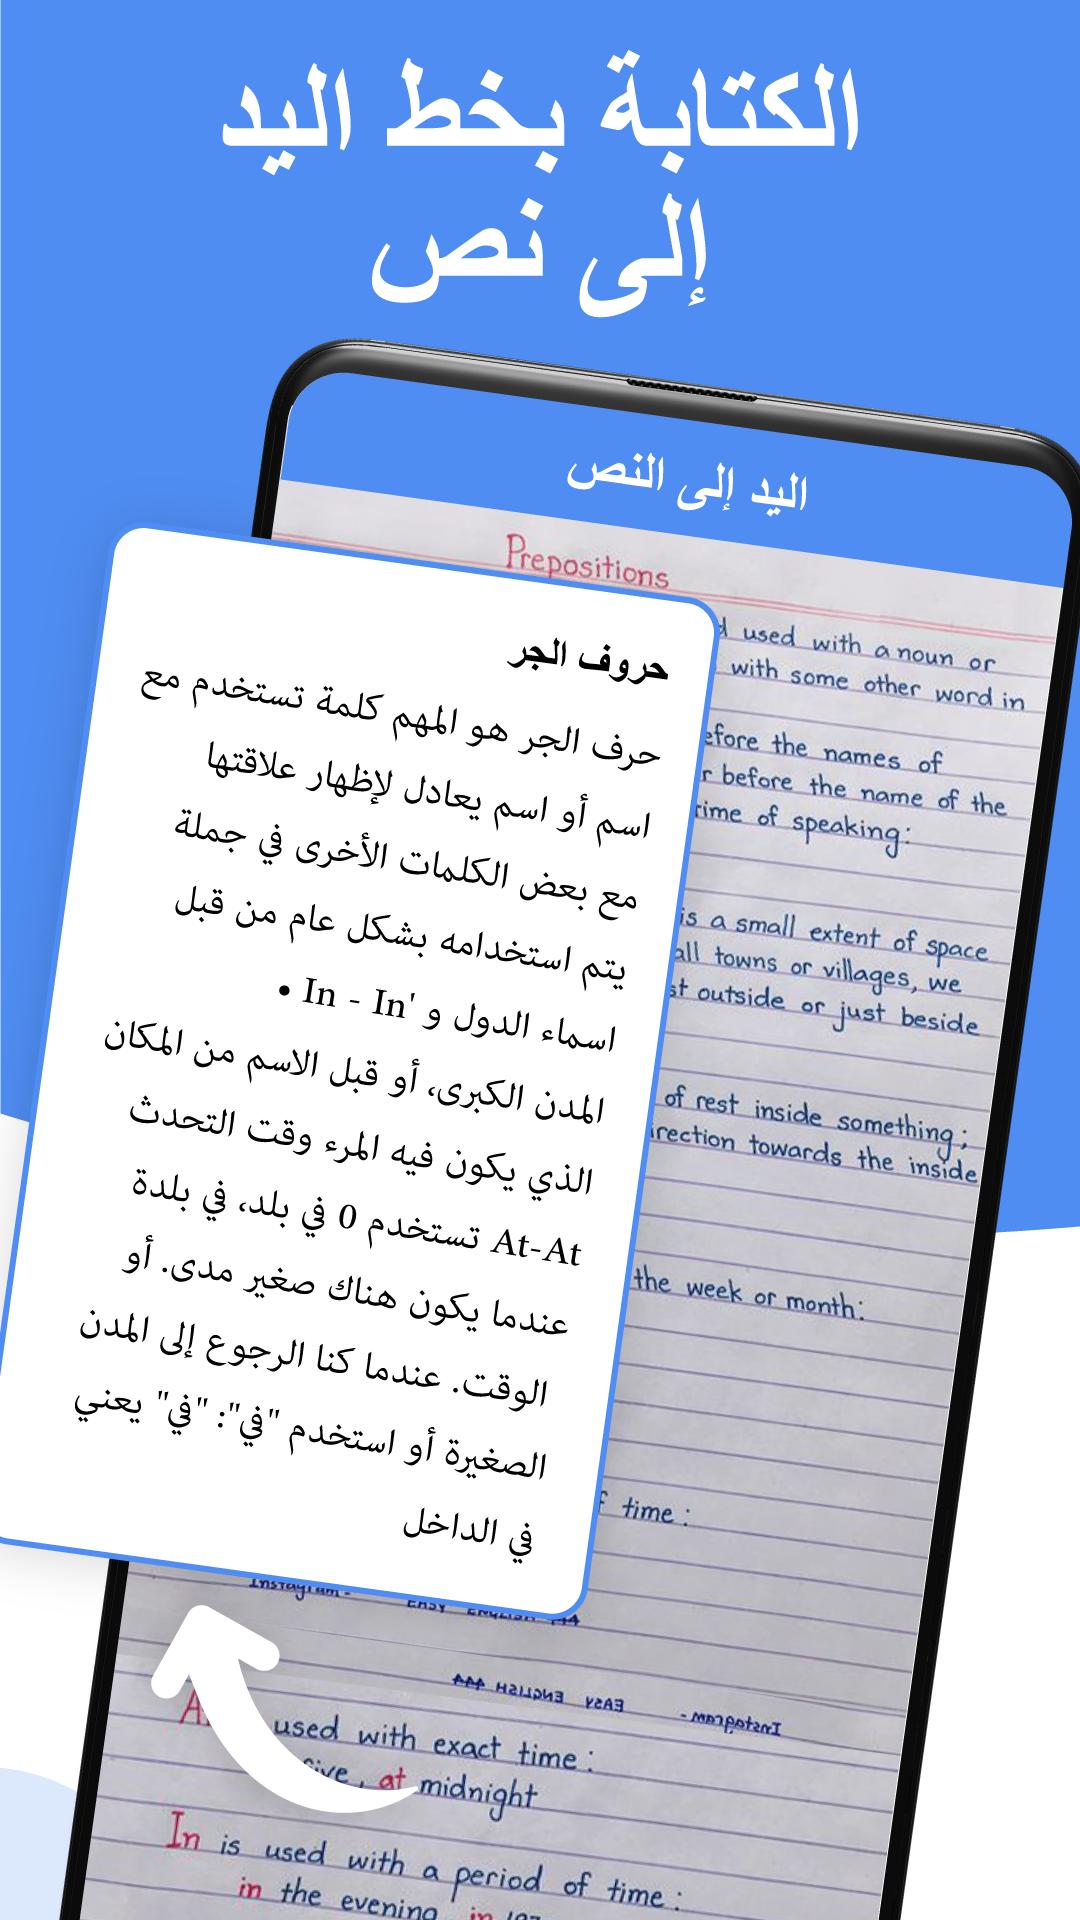 الكتابة بخط اليد
إلى نص
اليد إلى النص
Prepositions
used with a noun or
with some other word in
before the names of
before the name of the
time of speaking:
is a small extent of space
towns or villages, we
outside or just beside
of rest inside something;
direction towards the inside
the week or month:
time:
حروف الجر
حرف الجر هو المهم كلمة تستخدم مع
اسم أو اسم يعادل لإظهار علاقتها
مع بعض الكلمات الأخرى في جملة
يتم استخدامه بشكل عام من قبل
اسماء الدول و 'In - In •
المدن الكبرى، أو قبل الاسم من المكان
الذي يكون فيه المرء وقت التحدث
At-At تستخدم 0 في بلد، في بلدة
عندما يكون هناك صغير مدى. أو
الوقت. عندما كنا الرجوع إلى المدن
الصغيرة أو استخدم "في": "في" يعني
في الداخل
Instagram - EASY ENGLISH
Instagram - EASY ENGLISH AAA
used with exact time:
five, at midnight
In is used with a period of time:
in the evening, in